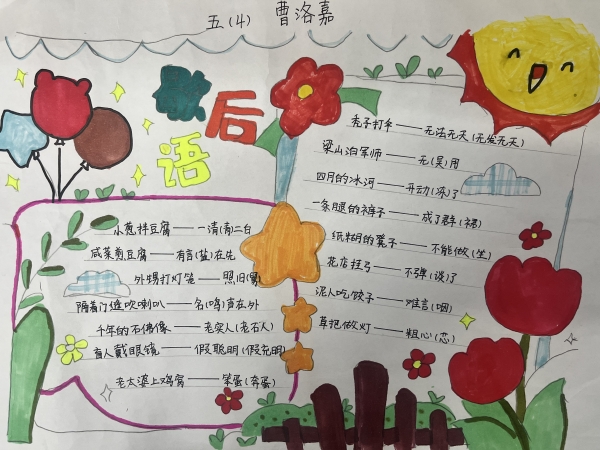 五(4) 曹洛嘉
歇后
语
秃子打伞——无法无天(无发无天)
梁山泊军师——无(吴)用
四月的冰河——开动(冻)了
一条腿的裤子——成了群(裙)
纸糊的凳子——不能做(坐)
花店挂弓——不弹(谈)了
泥人吃饺子——难言(咽)
草把做灯——粗心(芯)
小葱拌豆腐——一清(青)二白
咸菜煎豆腐——有言(盐)在先
外甥打灯笼——照旧(舅)
隔着门缝吹喇叭——名(鸣)声在外
千年的石佛像——老实人(老石人)
盲人戴眼镜——假聪明(假充明)
老太婆上鸡窝——笨蛋(奔蛋)